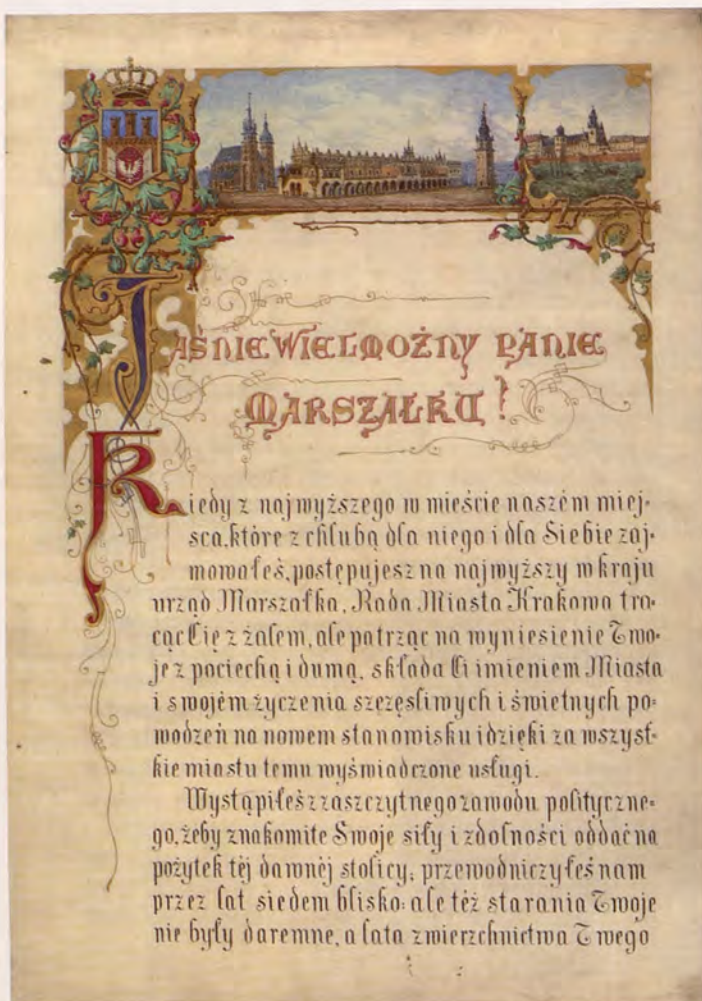 JAŚNIE WIELMOŻNY PANIE
MARSZAŁKU!
Kiedy z najwyższego w mieście naszém miej-
sca, które z chlubą dla niego i dla Siebie zaj-
mowałeś, postępujesz na najwyższy w kraju
urząd Marszałka, Rada Miasta Krakowa tra-
cąc Cię z żalem, ale patrząc na wyniesienie Two-
je z pociechą i dumą, składa Ci imieniem Miasta
i swojém życzenia szczęśliwych i świetnych po-
wodzeń na nowem stanowisku i dzięki za wszyst-
kie miastu temu wyświadczone usługi.
Wystąpiłeś z zaszczytnego zawodu polityczne-
go, żeby znakomite Swoje siły i zdolności oddać na
pożytek téj dawnéj stolicy; przewodniczyłeś nam
przez lat siedem blisko: ale też starania Twoje
nie były daremne, a lata zwierzchnictwa Twego